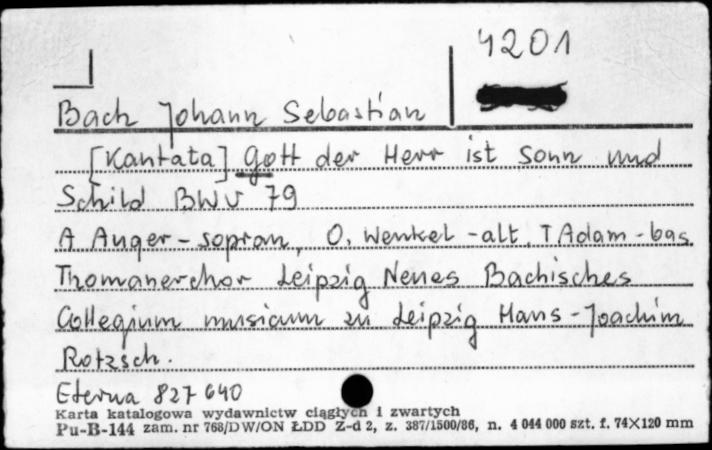 4201
Bach Johann Sebastian
[Kantata] Gott der Herr ist Sonn und
Schild BWV 79
A Auger - sopran, O. Wenkel - alt, T Adam - bas
Thomanerchor Leipzig Neues Bachisches
Collegium musicum zu Leipzig Hans-Joachim
Rotzsch.
Eterna 827 640
Karta katalogowa wydawnictw ciągłych i zwartych
Pu-B-144 zam. nr 768/DW/ON ŁDD Z-d 2, z. 387/1500/86, n. 4 044 000 szt. f. 74×120 mm